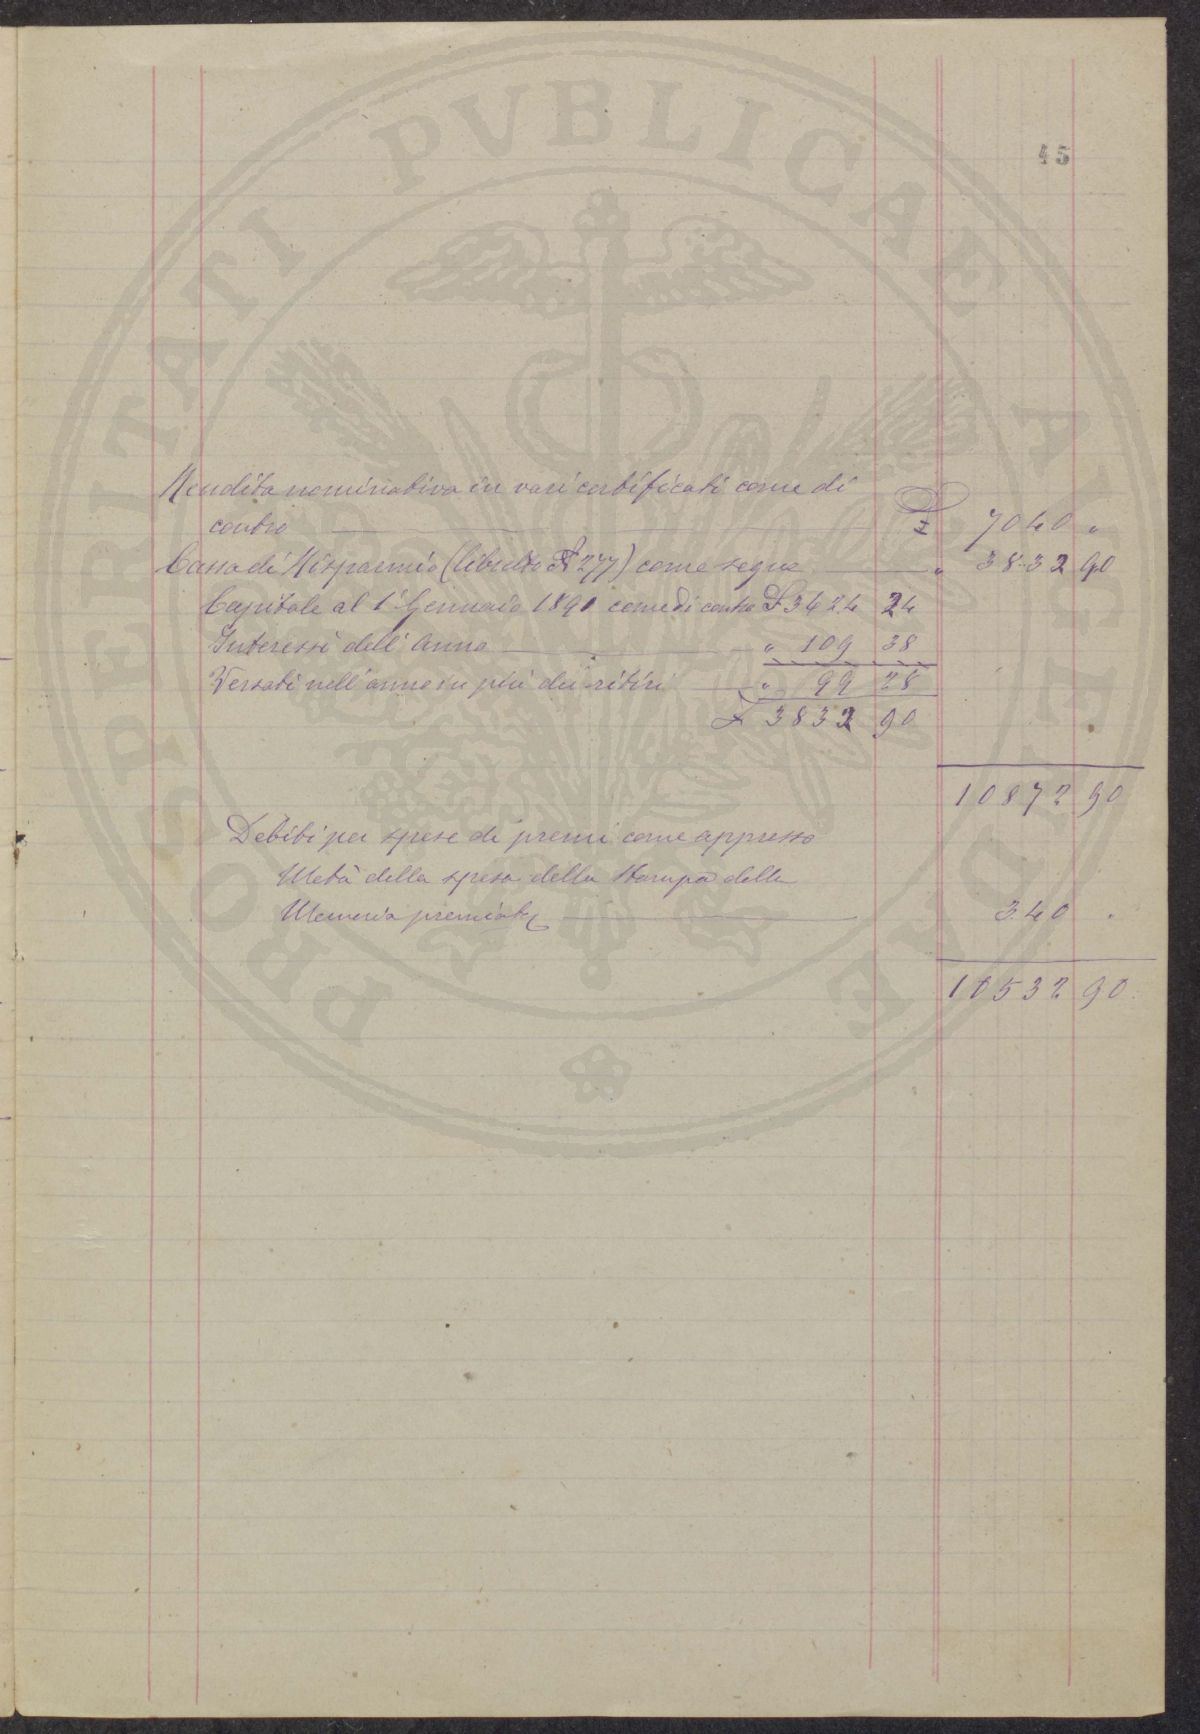 PROSPERITATI PVBLICAE AVGENDAE
45
Rendita nominativa in vari certificati come di
contro £ 7040 "
Cassa di Risparmio (libretto N 277) come segue " 3832 90
Capitale al 1° Gennaio 1890 come di contro £ 3424 24
Interessi dell'anno " 109 38
Versati nell'anno in più dei ritiri " 99 28
£ 3832 90
10872 90
Debiti per spese di premi come appresso
Metà della spesa della Stampa delle
Memoria premiate 340 "
10532 90